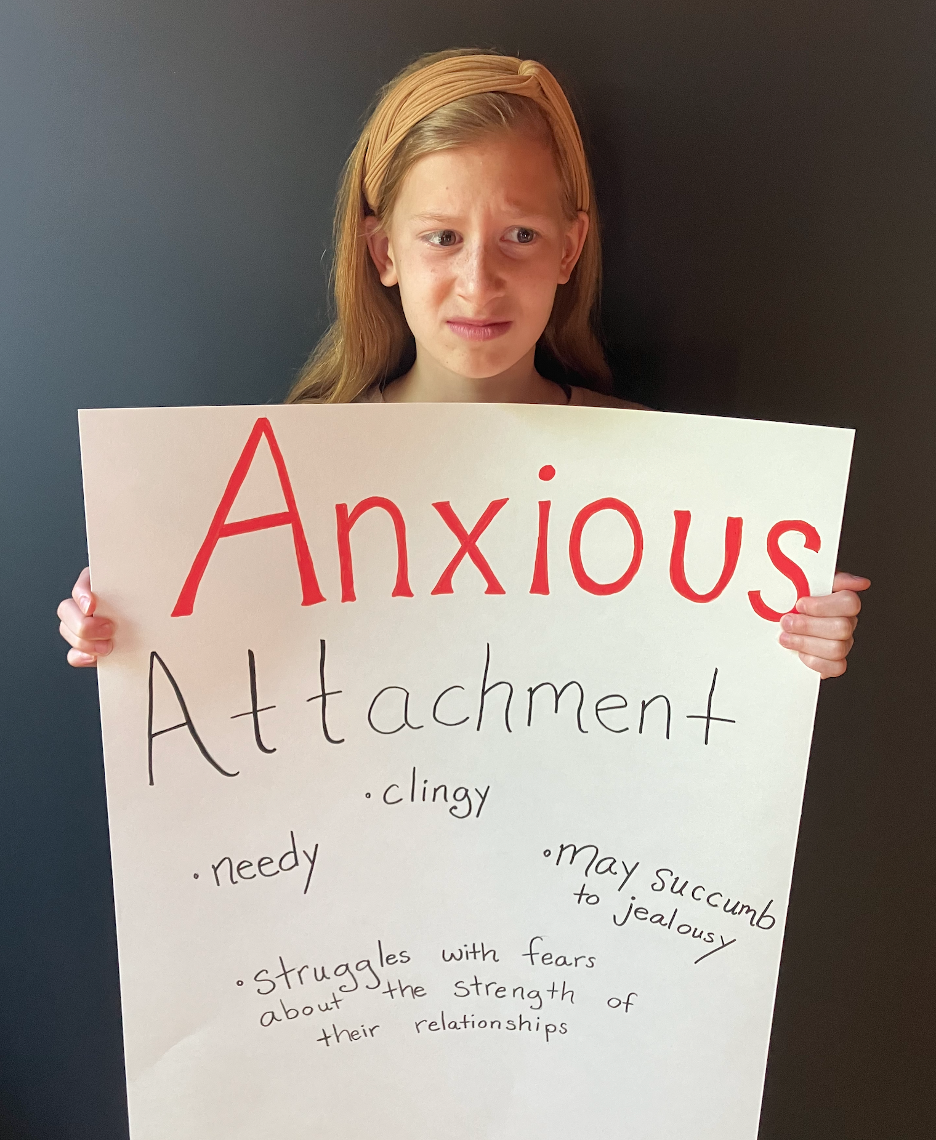 Anxious
Attachment
• clingy
• needy
• may succumb
to jealousy
• struggles with fears
about the strength of
their relationships